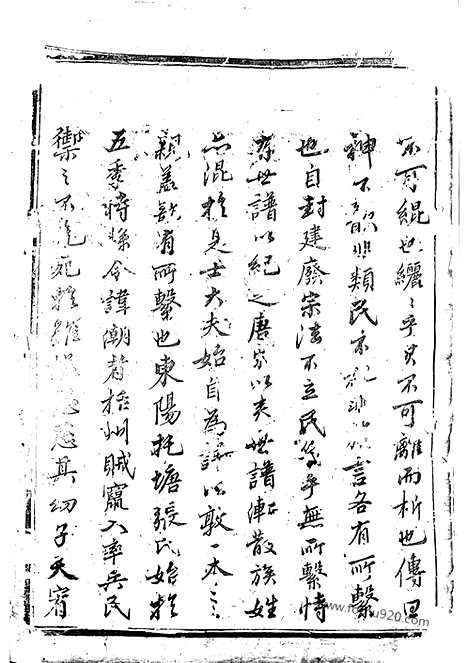 不可緄也纚纚乎其不可離而析也傳曰
神不歆非類民不祀非族言各有所繫
也自封建廢宗法不立民泛乎無所繫恃
有世譜以紀之唐衰以來世譜軼散族姓
亦混於是士大夫始自為譜以敦一本之
親蓋欲有所繫也東陽托塘張氏始於
五季時烏傷令諱潮者梧州賊竄入率兵民
禦之不克死於難 其幼子天宥
www.fcjiapu920.com